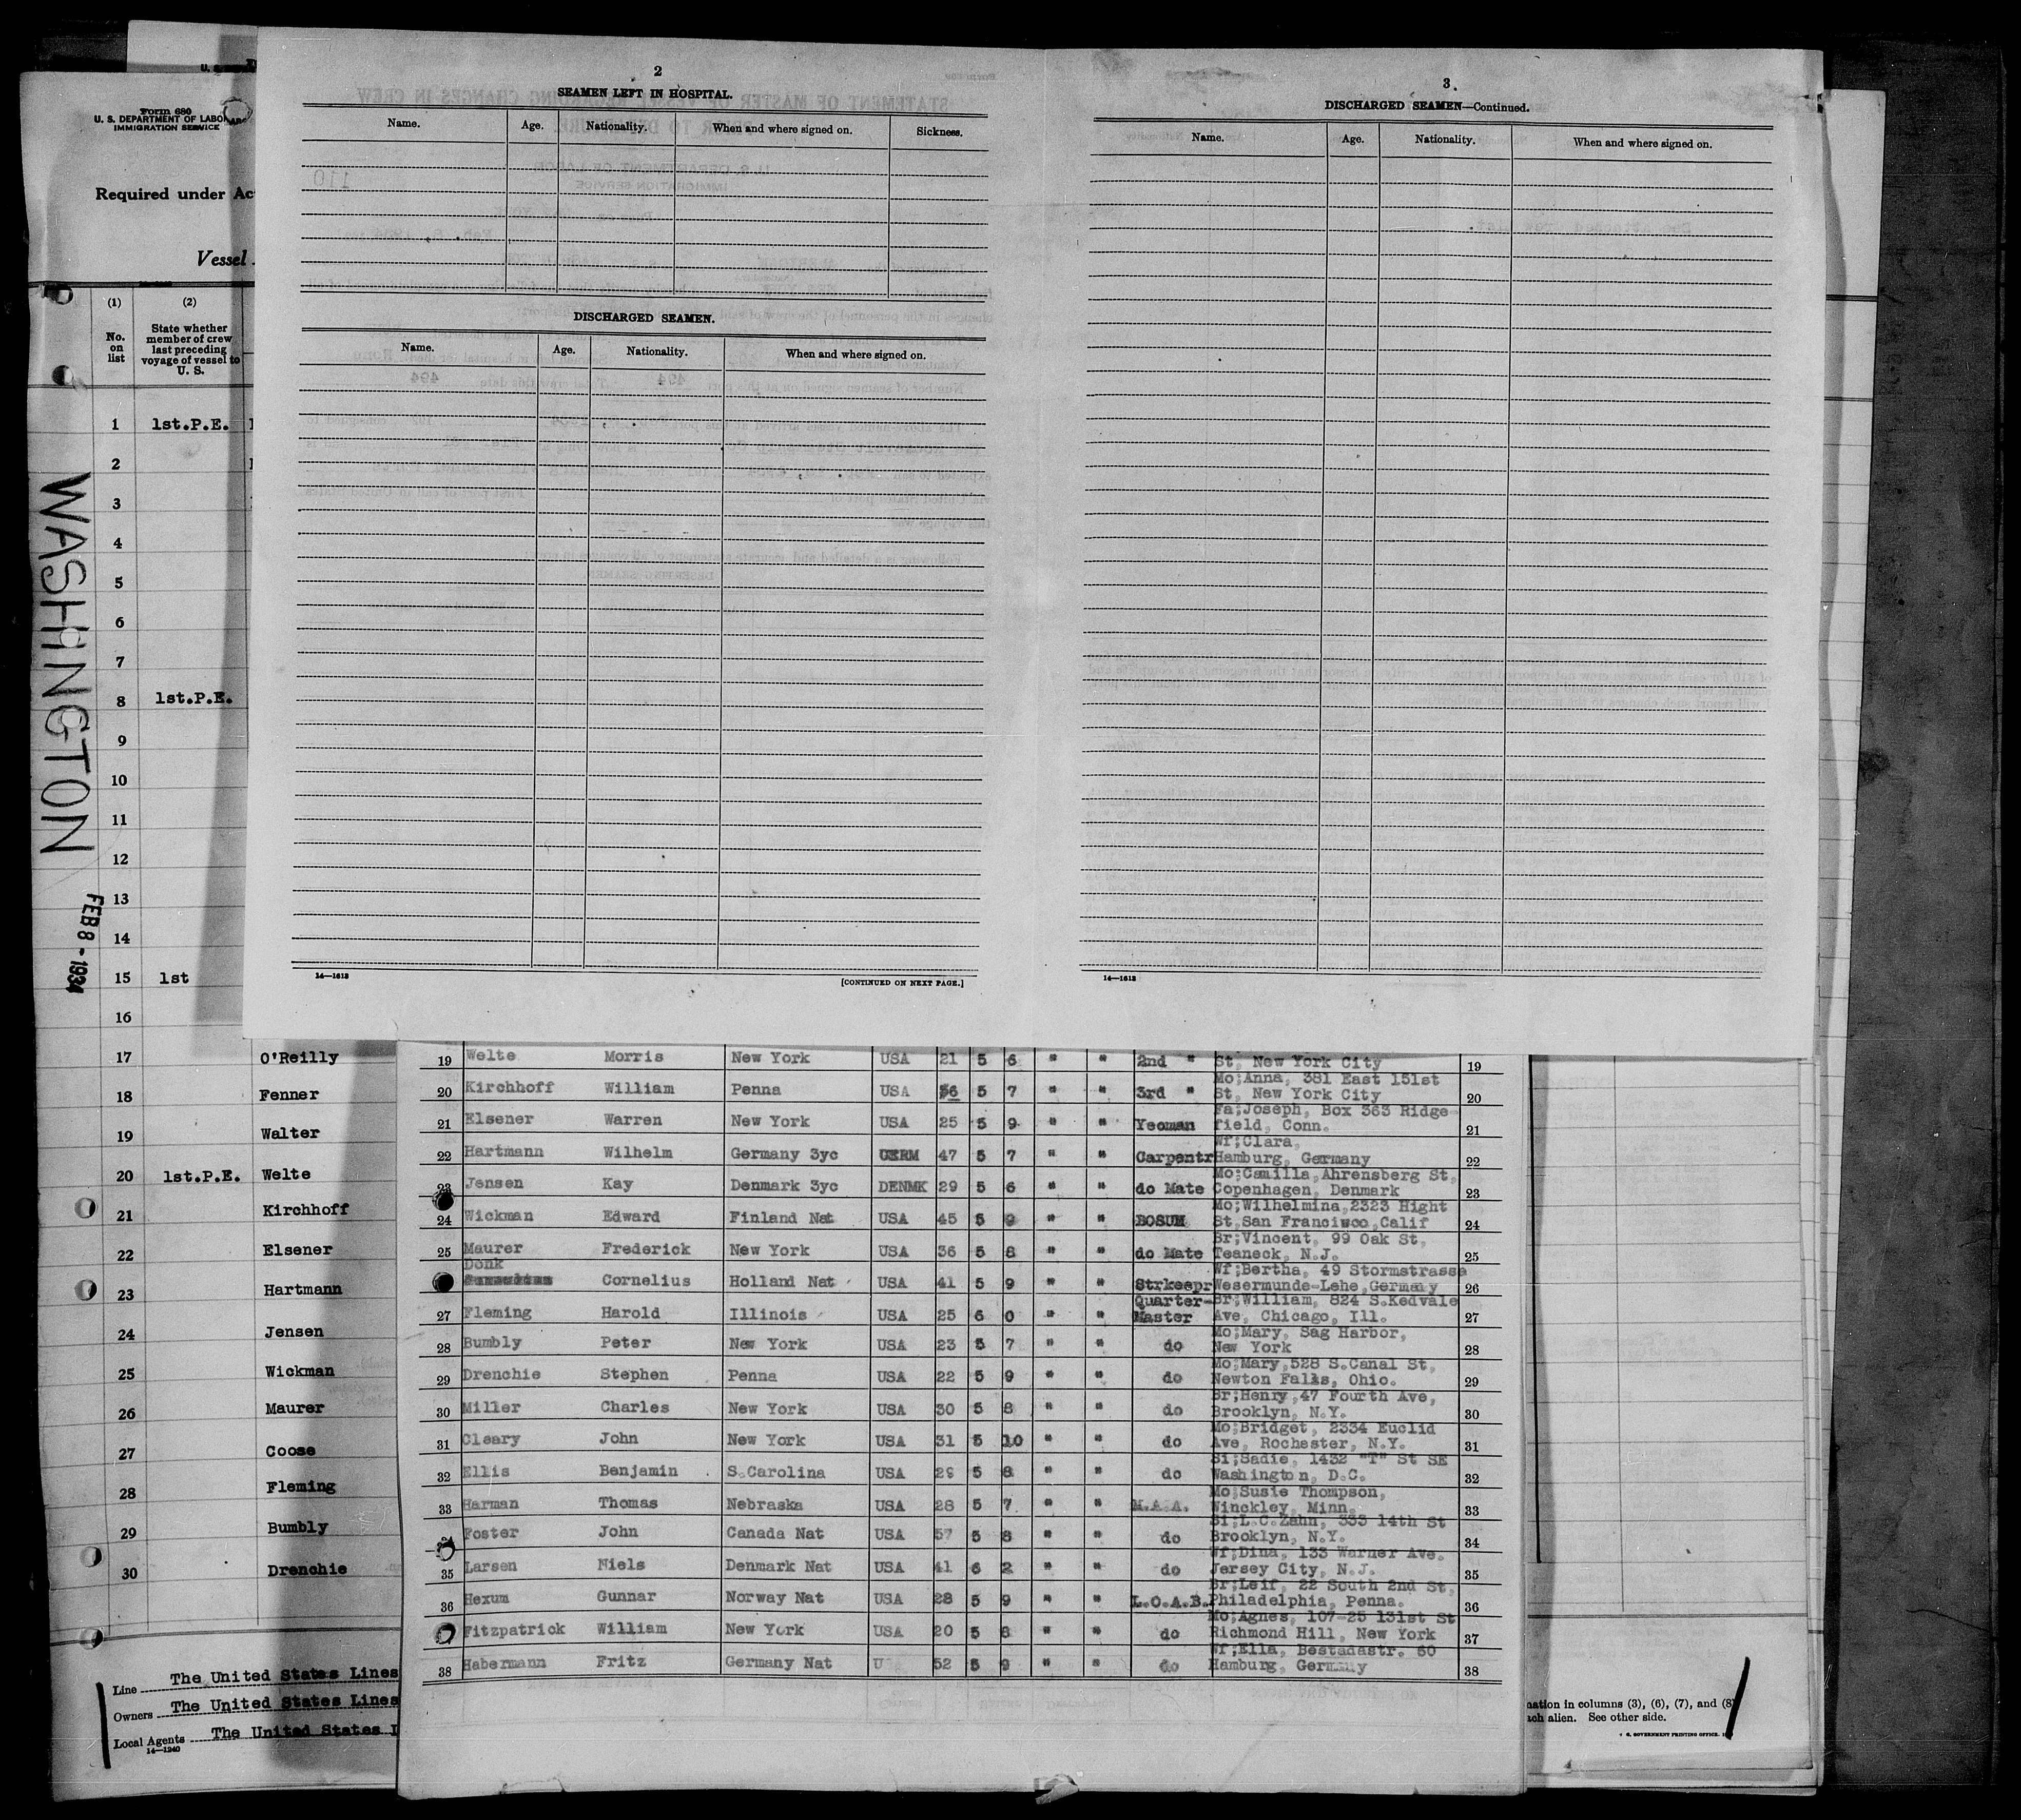 Form 680
U. S. DEPARTMENT OF LABOR
IMMIGRATION SERVICE
Required under Ac
Vessel
(1) (2)
No. on list
State whether member of crew last preceding voyage of vessel to U. S.
WASHINGTON
FEB 8 - 1934
1 1st.P.E.
2
3
4
5
6
7
8 1st.P.E.
9
10
11
12
13
14
15 1st
16
17 O'Reilly
18 Fenner
19 Walter
20 1st.P.E. Welte
21 Kirchhoff
22 Elsener
23 Hartmann
24 Jensen
25 Wickman
26 Maurer
27 Coose
28 Fleming
29 Bumbly
30 Drenchie
Line The United States Lines
Owners The United States Lines
Local Agents The United States L
14—1240
2
SEAMEN LEFT IN HOSPITAL.
Name. Age. Nationality. When and where signed on. Sickness.
DISCHARGED SEAMEN.
Name. Age. Nationality. When and where signed on.
14—1613 [CONTINUED ON NEXT PAGE.]
3
DISCHARGED SEAMEN—Continued.
Name. Age. Nationality. When and where signed on.
14—1613
19 Welte Morris New York USA 21 5 6 " " 2nd " St, New York City 19
Mo;Anna, 381 East 151st
20 Kirchhoff William Penna USA 36 5 7 " " 3rd " St, New York City 20
Fa;Joseph, Box 363 Ridge
21 Elsener Warren New York USA 25 5 9 " " Yeoman field, Conn. 21
Wf;Clara,
22 Hartmann Wilhelm Germany 3yc GERM 47 5 7 " " Carpentr Hamburg, Germany 22
Mo;Camilla,Ahrensberg St,
23 Jensen Kay Denmark 3yc DENMK 29 5 6 " " do Mate Copenhagen, Denmark 23
Mo;Wilhelmina,2323 Hight
24 Wickman Edward Finland Nat USA 45 5 9 " " BOSUM St,San Francisco,Calif 24
Br;Vincent, 99 Oak St,
25 Maurer Frederick New York USA 36 5 8 " " do Mate Teaneck, N.J. 25
Donk Wf;Bertha, 49 Stormstrasse
Cornelius Holland Nat USA 41 5 9 " " Strkeepr Wesermunde-Lehe,Germany 26
Quarter- Br;William, 824 S.Kedvale
27 Fleming Harold Illinois USA 25 6 0 " " Master Ave, Chicago, Ill. 27
Mo;Mary, Sag Harbor,
28 Bumbly Peter New York USA 23 5 7 " " do New York 28
Mo;Mary,528 S.Canal St,
29 Drenchie Stephen Penna USA 22 5 9 " " do Newton Falls, Ohio. 29
Br;Henry,47 Fourth Ave,
30 Miller Charles New York USA 30 5 8 " " do Brooklyn, N.Y. 30
Mo;Bridget, 2334 Euclid
31 Cleary John New York USA 31 5 10 " " do Ave, Rochester, N.Y. 31
Si;Sadie, 1432 "T" St SE
32 Ellis Benjamin S.Carolina USA 29 5 8 " " do Washington, D.C. 32
Mo;Susie Thompson,
33 Harman Thomas Nebraska USA 28 5 7 " " M.A.A. Winckley, Minn. 33
Si;L.C.Zahn, 333 14th St
34 Foster John Canada Nat USA 57 5 8 " " do Brooklyn, N.Y. 34
Wf;Dina, 133 Warner Ave.
35 Larsen Niels Denmark Nat USA 41 6 2 " " do Jersey City, N.J. 35
Br;Leif, 22 South 2nd St,
36 Hexum Gunnar Norway Nat USA 28 5 9 " " L.O.A.B. Philadelphia, Penna. 36
Mo;Agnes, 107-25 131st St
Fitzpatrick William New York USA 20 5 8 " " do Richmond Hill, New York 37
Wf;Ella, Bestadastr. 60
38 Habermann Fritz Germany Nat U 52 5 9 " " do Hamburg, Germany 38
ation in columns (3), (6), (7), and (8)
ch alien. See other side.
GOVERNMENT PRINTING OFFICE